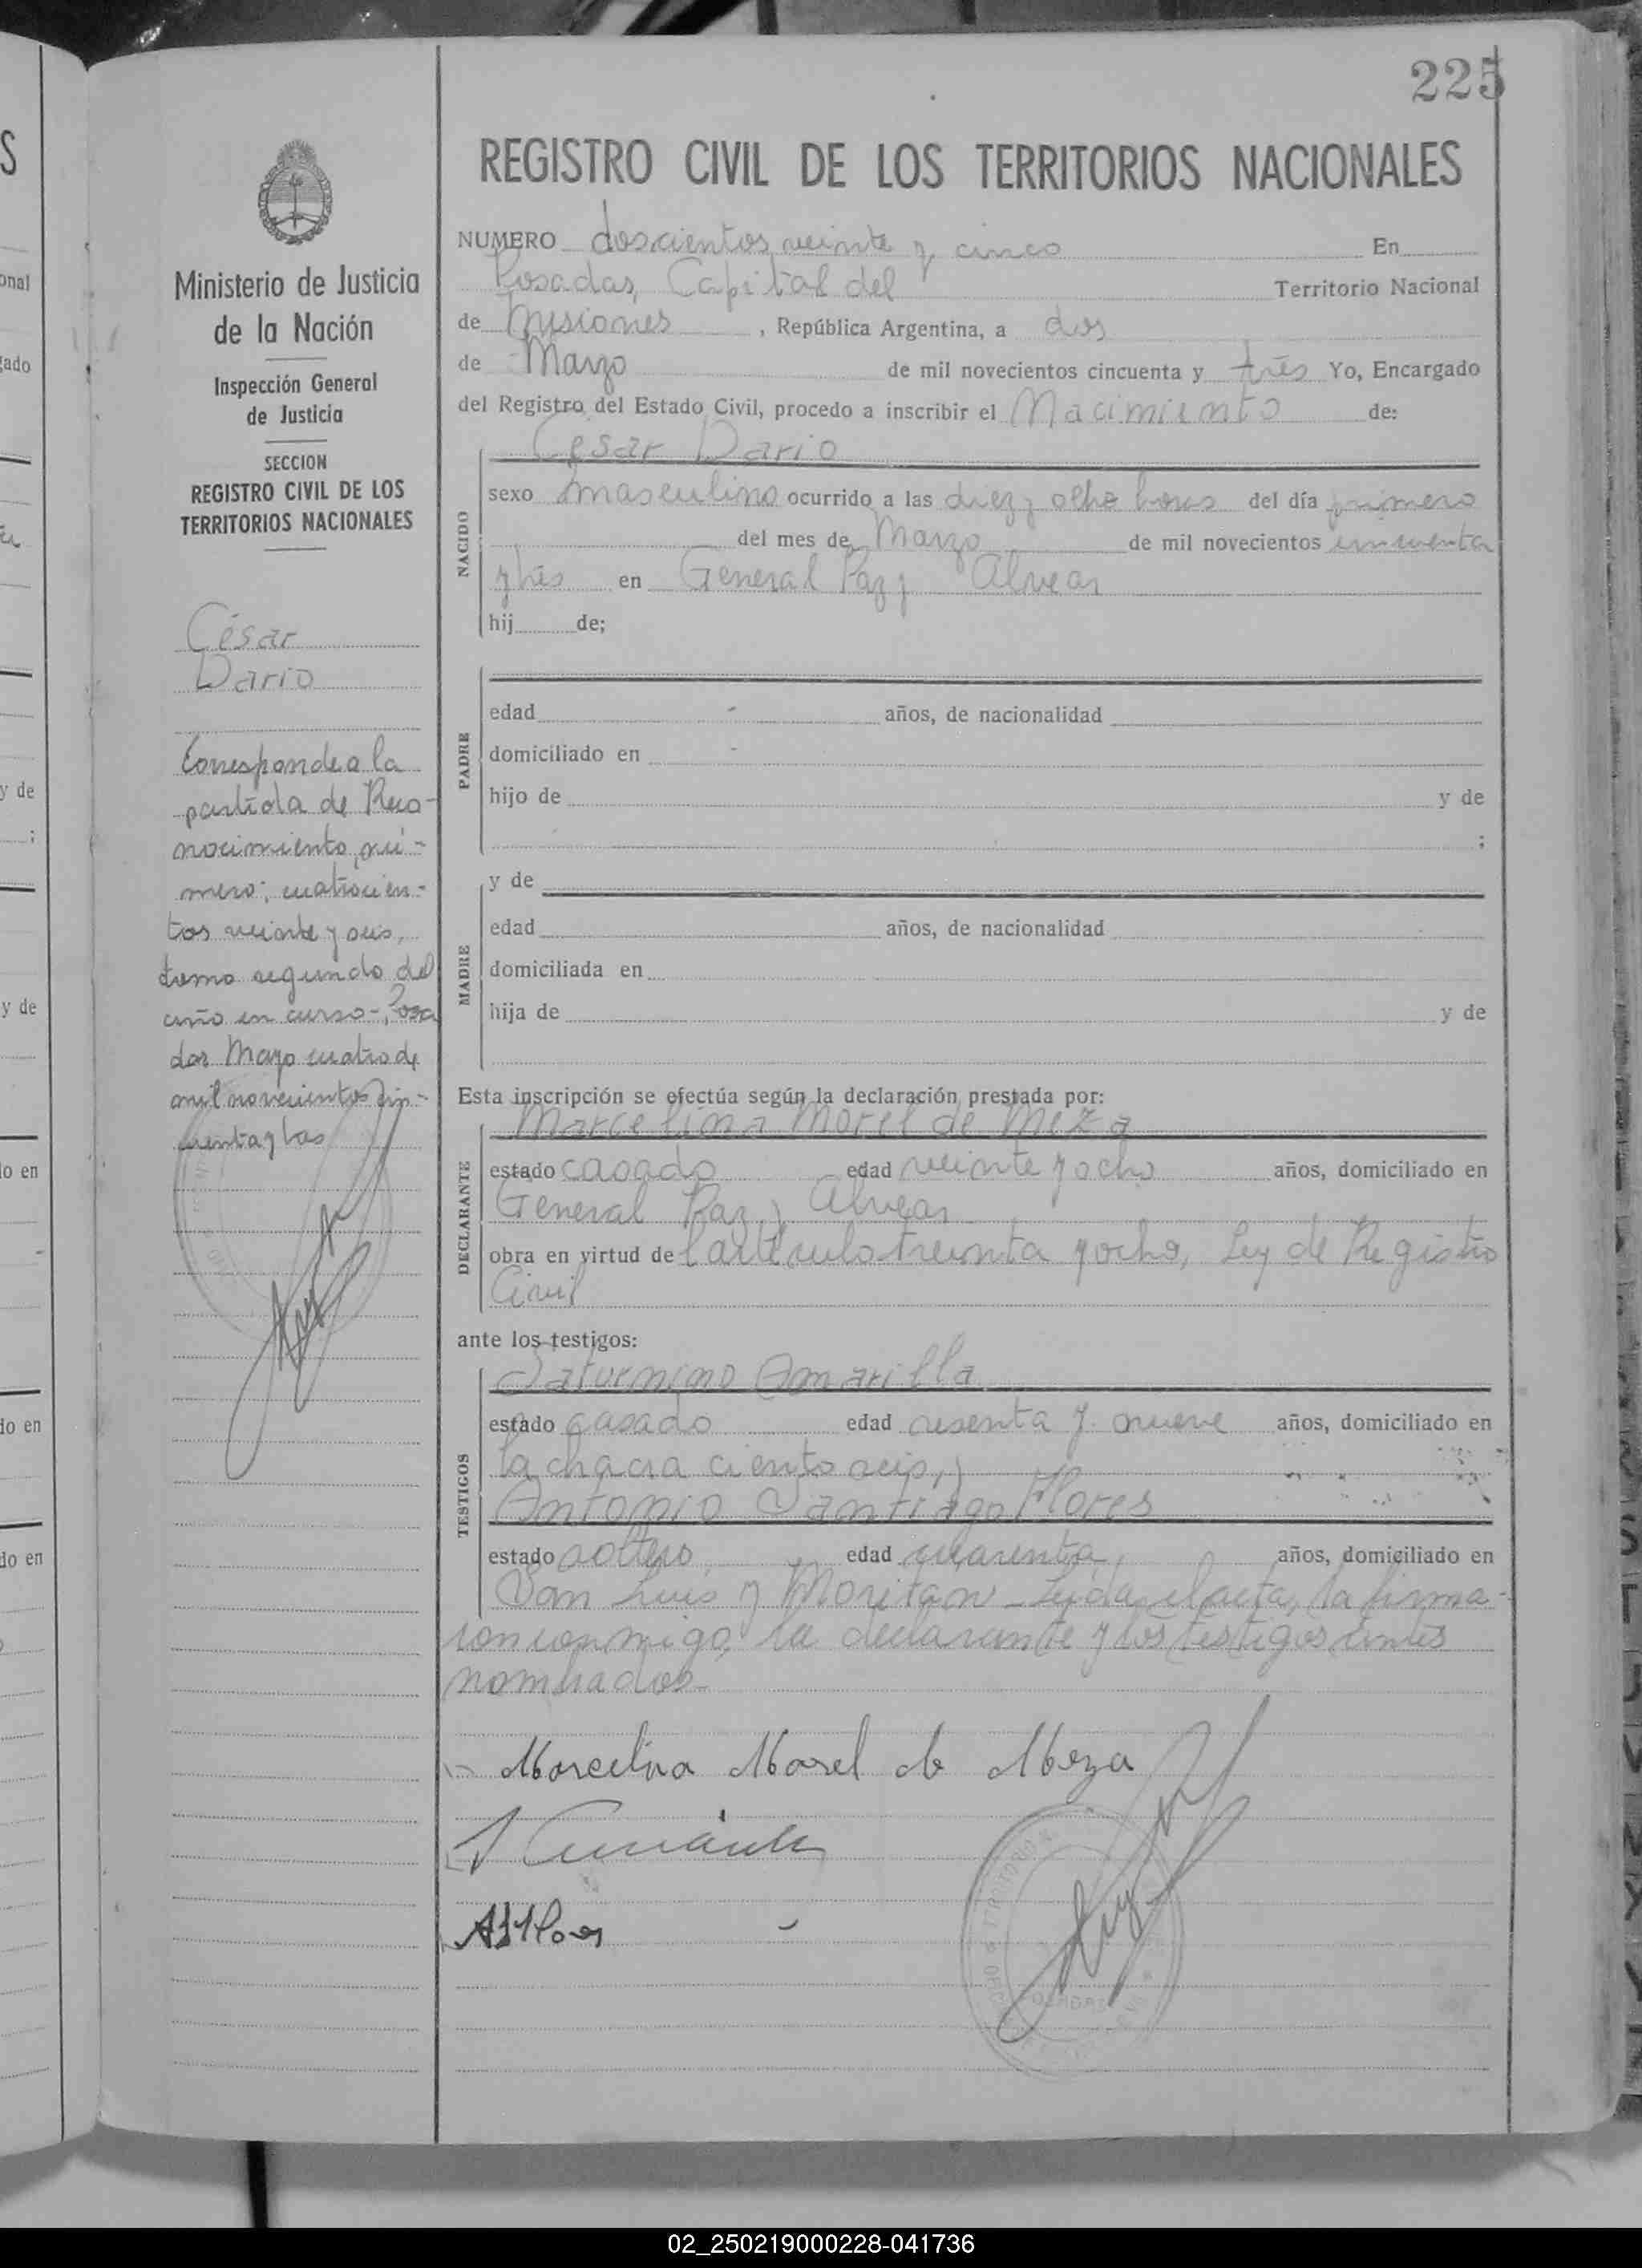 225
REGISTRO CIVIL DE LOS TERRITORIOS NACIONALES
Ministerio de Justicia
de la Nación
Inspección General
de Justicia
SECCION
REGISTRO CIVIL DE LOS
TERRITORIOS NACIONALES
César
Dario
Corresponde a la
partida de Reco-
nocimiento, nú-
mero; cuatrocien-
tos veinte y seis,
tomo segundo del
año en curso-, Posa
das Mayo cuatro de
mil novecientos cin-
cuenta y tres
NUMERO doscientos veinte y cinco En
Posadas, Capital del Territorio Nacional
de Misiones, República Argentina, a dos
de Marzo de mil novecientos cincuenta y trés Yo, Encargado
del Registro del Estado Civil, procedo a inscribir el Nacimiento de:
César Dario
NACIDO
sexo masculino ocurrido a las diez y ocho horas del día primero
del mes de Marzo de mil novecientos cincuenta
y trés en General Paz y Alvear
hij de;
PADRE
edad - años, de nacionalidad
domiciliado en -
hijo de y de
;
MADRE
y de
edad años, de nacionalidad
domiciliada en
hija de y de
Esta inscripción se efectúa según la declaración prestada por:
DECLARANTE
Marcelina Morel de Meza
estado casada edad veinte y ocho años, domiciliado en
General Paz y Alvear
obra en virtud del artículo treinta y ocho, Ley de Registro
Civil
ante los testigos:
TESTIGOS
Saturnino Amarilla
estado casado edad sesenta y nueve años, domiciliado en
la chacra ciento seis, y
Antonio Santiago Flores
estado soltero edad cuarenta, años, domiciliado en
San Luis y Moritan - Leida el acta, la firma-
ron conmigo, la declarante y los testigos antes
nombrados-
Marcelina Morel de Meza
ASFlores
POSADAS
02_250219000228-041736